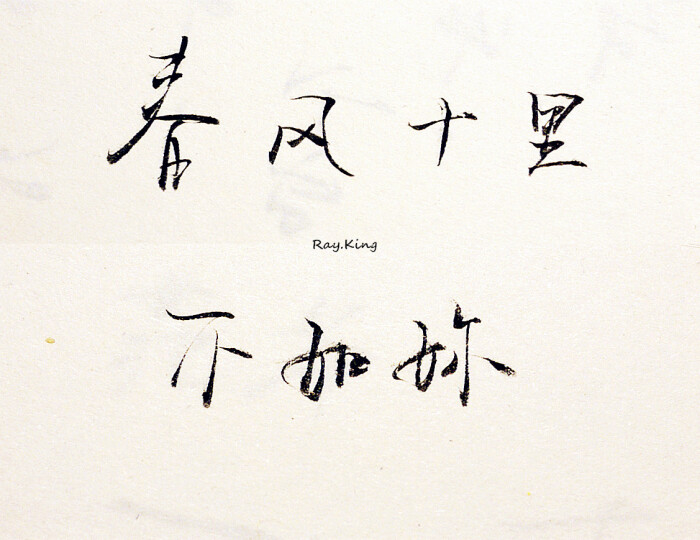 春风十里
Ray.King
不如妳